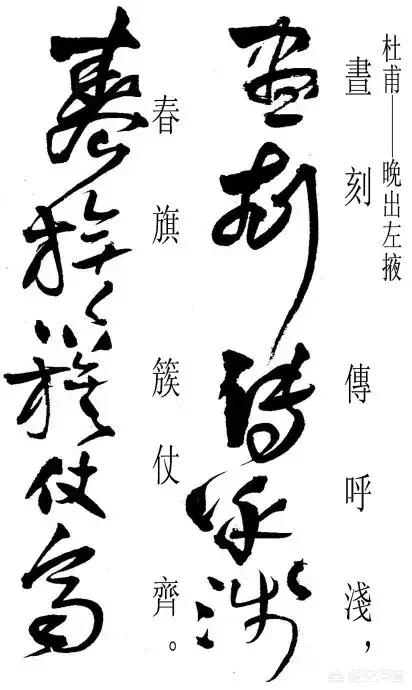 杜甫——晚出左掖
晝刻傳呼淺，
晝刻傳呼淺
春旗簇仗齊。
春旗簇仗齊